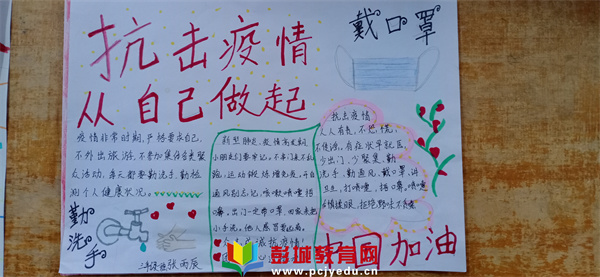 抗击疫情
从自己做起
戴口罩
疫情非常时期,严格要求自己,
不外出旅游,不参加集体各类聚
众活动,每天都要勤洗手,勤检
测个人健康状况。
勤洗手
新型肺炎,疫情高发期,
小朋友们要牢记,不串门来不乱
跑,运动锻炼增免疫,开窗
通风别忘记,咳嗽喷嚏捂
口鼻,出门一定带口罩,回家先把
小手洗。
抗击疫情
人人有责,不恐慌,
不传谣,有在状早就医,
少出门,少聚集,勤
洗手,勤通风,戴口罩,讲
卫生,打喷嚏,捂口鼻,喷嚏
后慎揉眼,拒绝野味不贪嘴
中国加油
彭城教育网
www.pcjyedu.cn